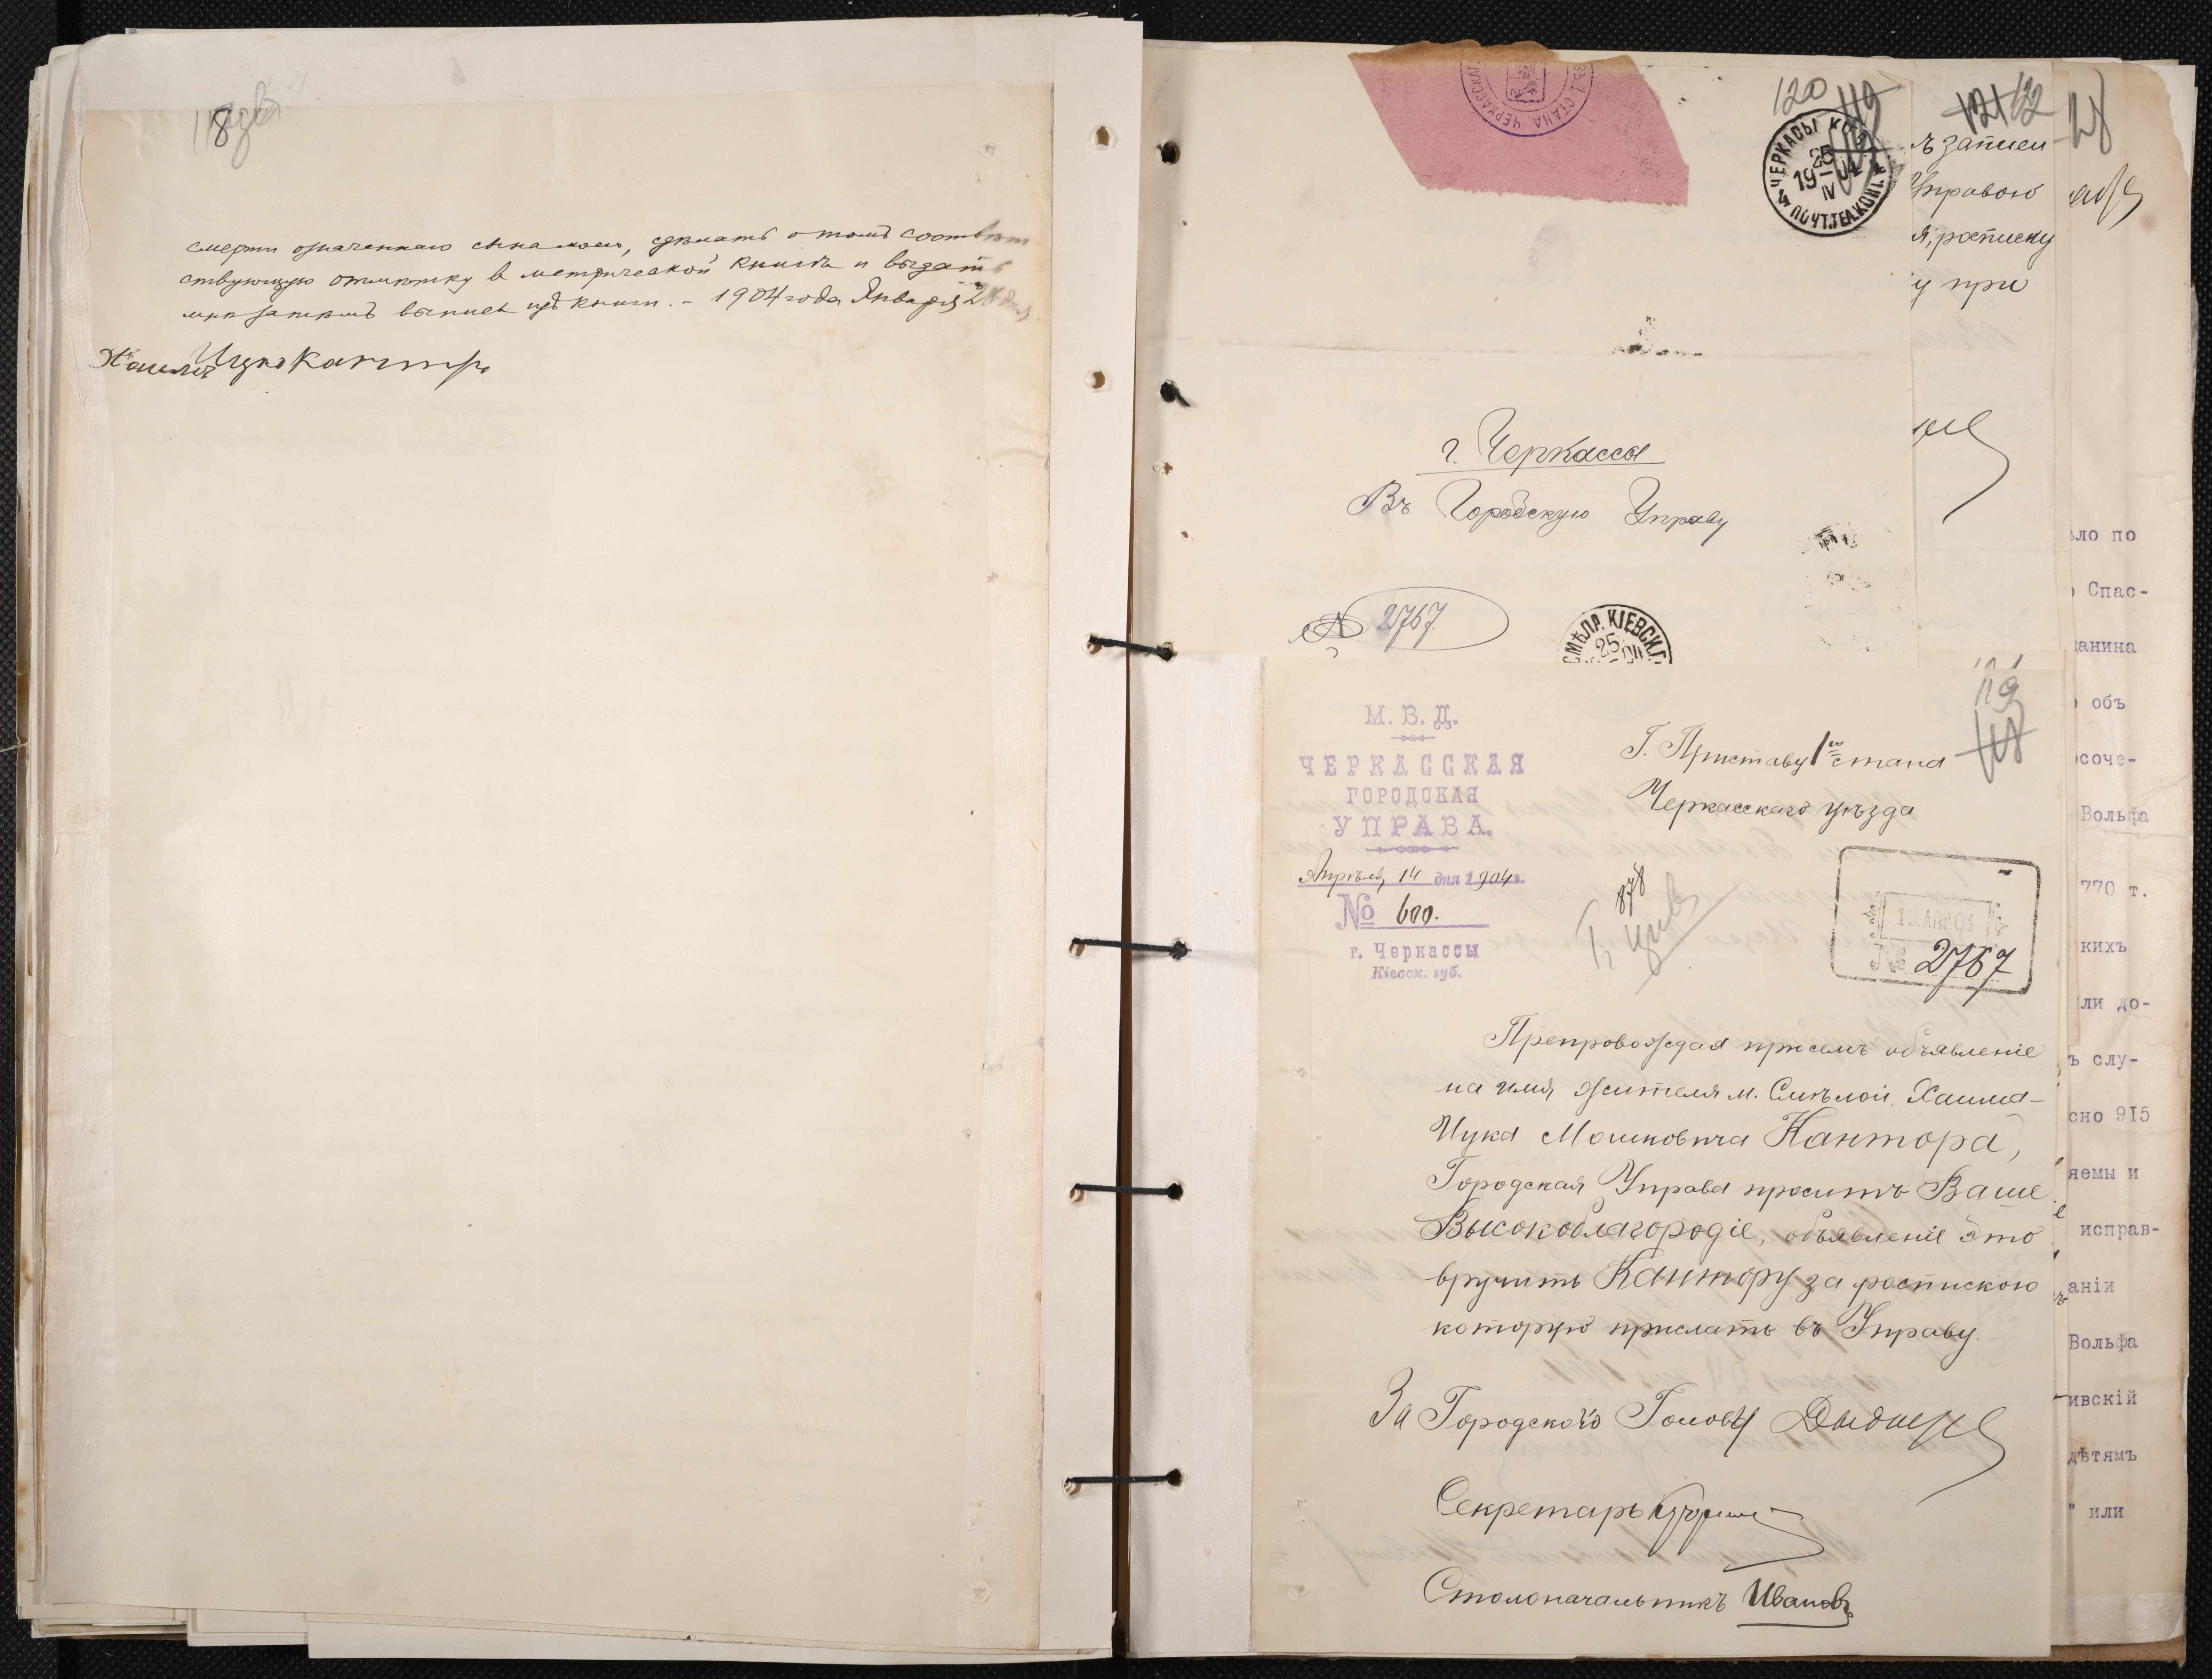 118
смерти означеннаго сына моего, сдѣлать о томъ соотвѣт
ствующую отмѣтку в метрической книгѣ и выдать
мнѣ затѣмъ выпись изъ книги. - 1904 года Января 28 дня
Хаимъ Ицко Кантор
120 119
ЧЕРКАСЫ КІЕВ.
25
19-04
IV
ПОЧТ.ТЕЛ.КОНТ.
СТАНА ЧЕРКАССКАГ
г. Черкассы
Въ Городскую Управу
№ 2767
СМѢЛА КІЕВСК.Г.
25
119
118
М. В. Д.
ЧЕРКАССКАЯ
ГОРОДСКАЯ
УПРАВА.
Апрѣля 14 дня 1904 г.
№ 600.
г. Черкассы
Кіевск. губ.
Г. Приставу 1го стана
Черкасскаго уѣзда
878
19 АПР 04
№ 2767
Препровождая при семъ объявленіе
на имя жителя м. Смѣлой, Хаима-
Ицка Мошковича Кантора,
Городская Управа проситъ Ваше
Высокоблагородіе, объявленіе это
вручить Кантору за роспискою
которую прислать въ Управу.
За Городского Голову
Секретарь
Столоначальникъ Ивановъ
121 122
ъ записи
Управою
я, росписку
у при
ѣло по
о Спас-
данина
о объ
осоче-
Вольфа
770 т.
кихъ
ли до-
ъ слу-
сно 915
яемы и
исправ-
аніи
Вольфа
ивскій
дѣтямъ
" или